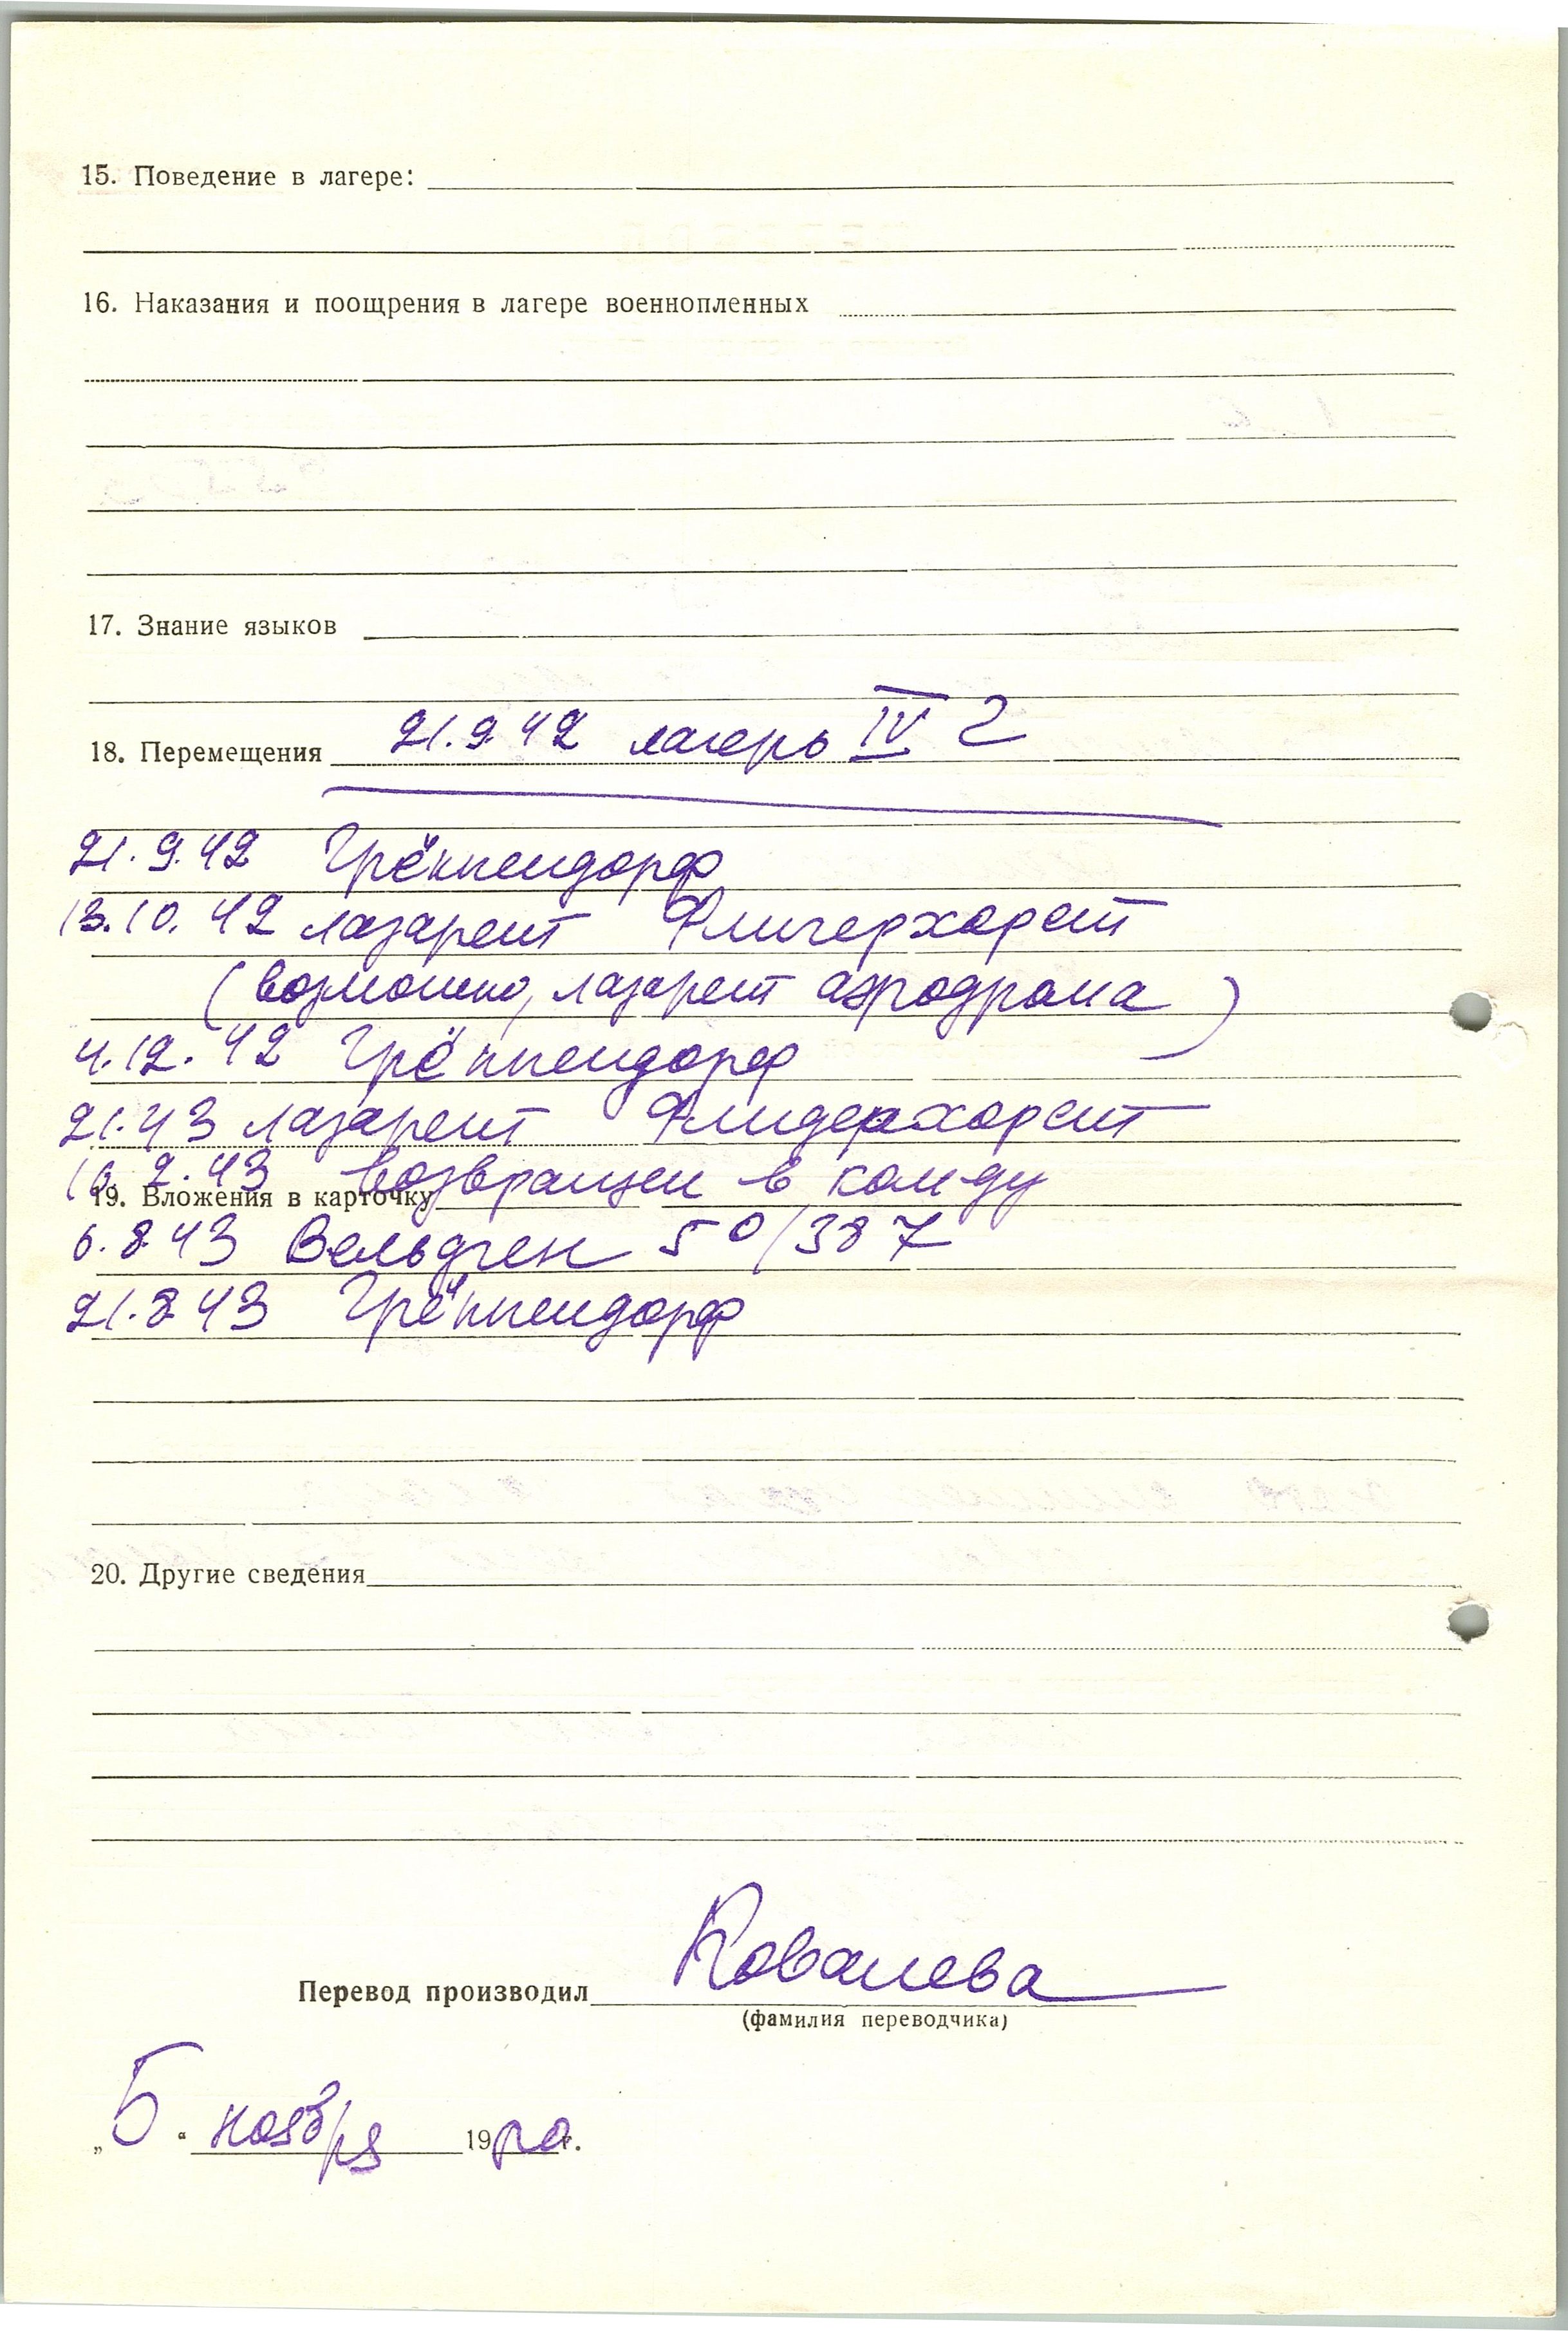 15. Поведение в лагере:
16. Наказания и поощрения в лагере военнопленных
17. Знание языков
18. Перемещения 21.9.42 лагерь IV Г
21.9.42 Грёппендорф
13.10.42 лазарет Флигерхорст
(возможно, лазарет аэродрома)
4.12.42 Грёппендорф
21.43 лазарет Флидерхорст
2.43 возвращен в команду
19. Вложения в карточку
6.8.43 Вельдген 50/387
21.8.43 Грёппендорф
20. Другие сведения
Перевод производил Ковалева
(фамилия переводчика)
„5“ ноября 19 г.